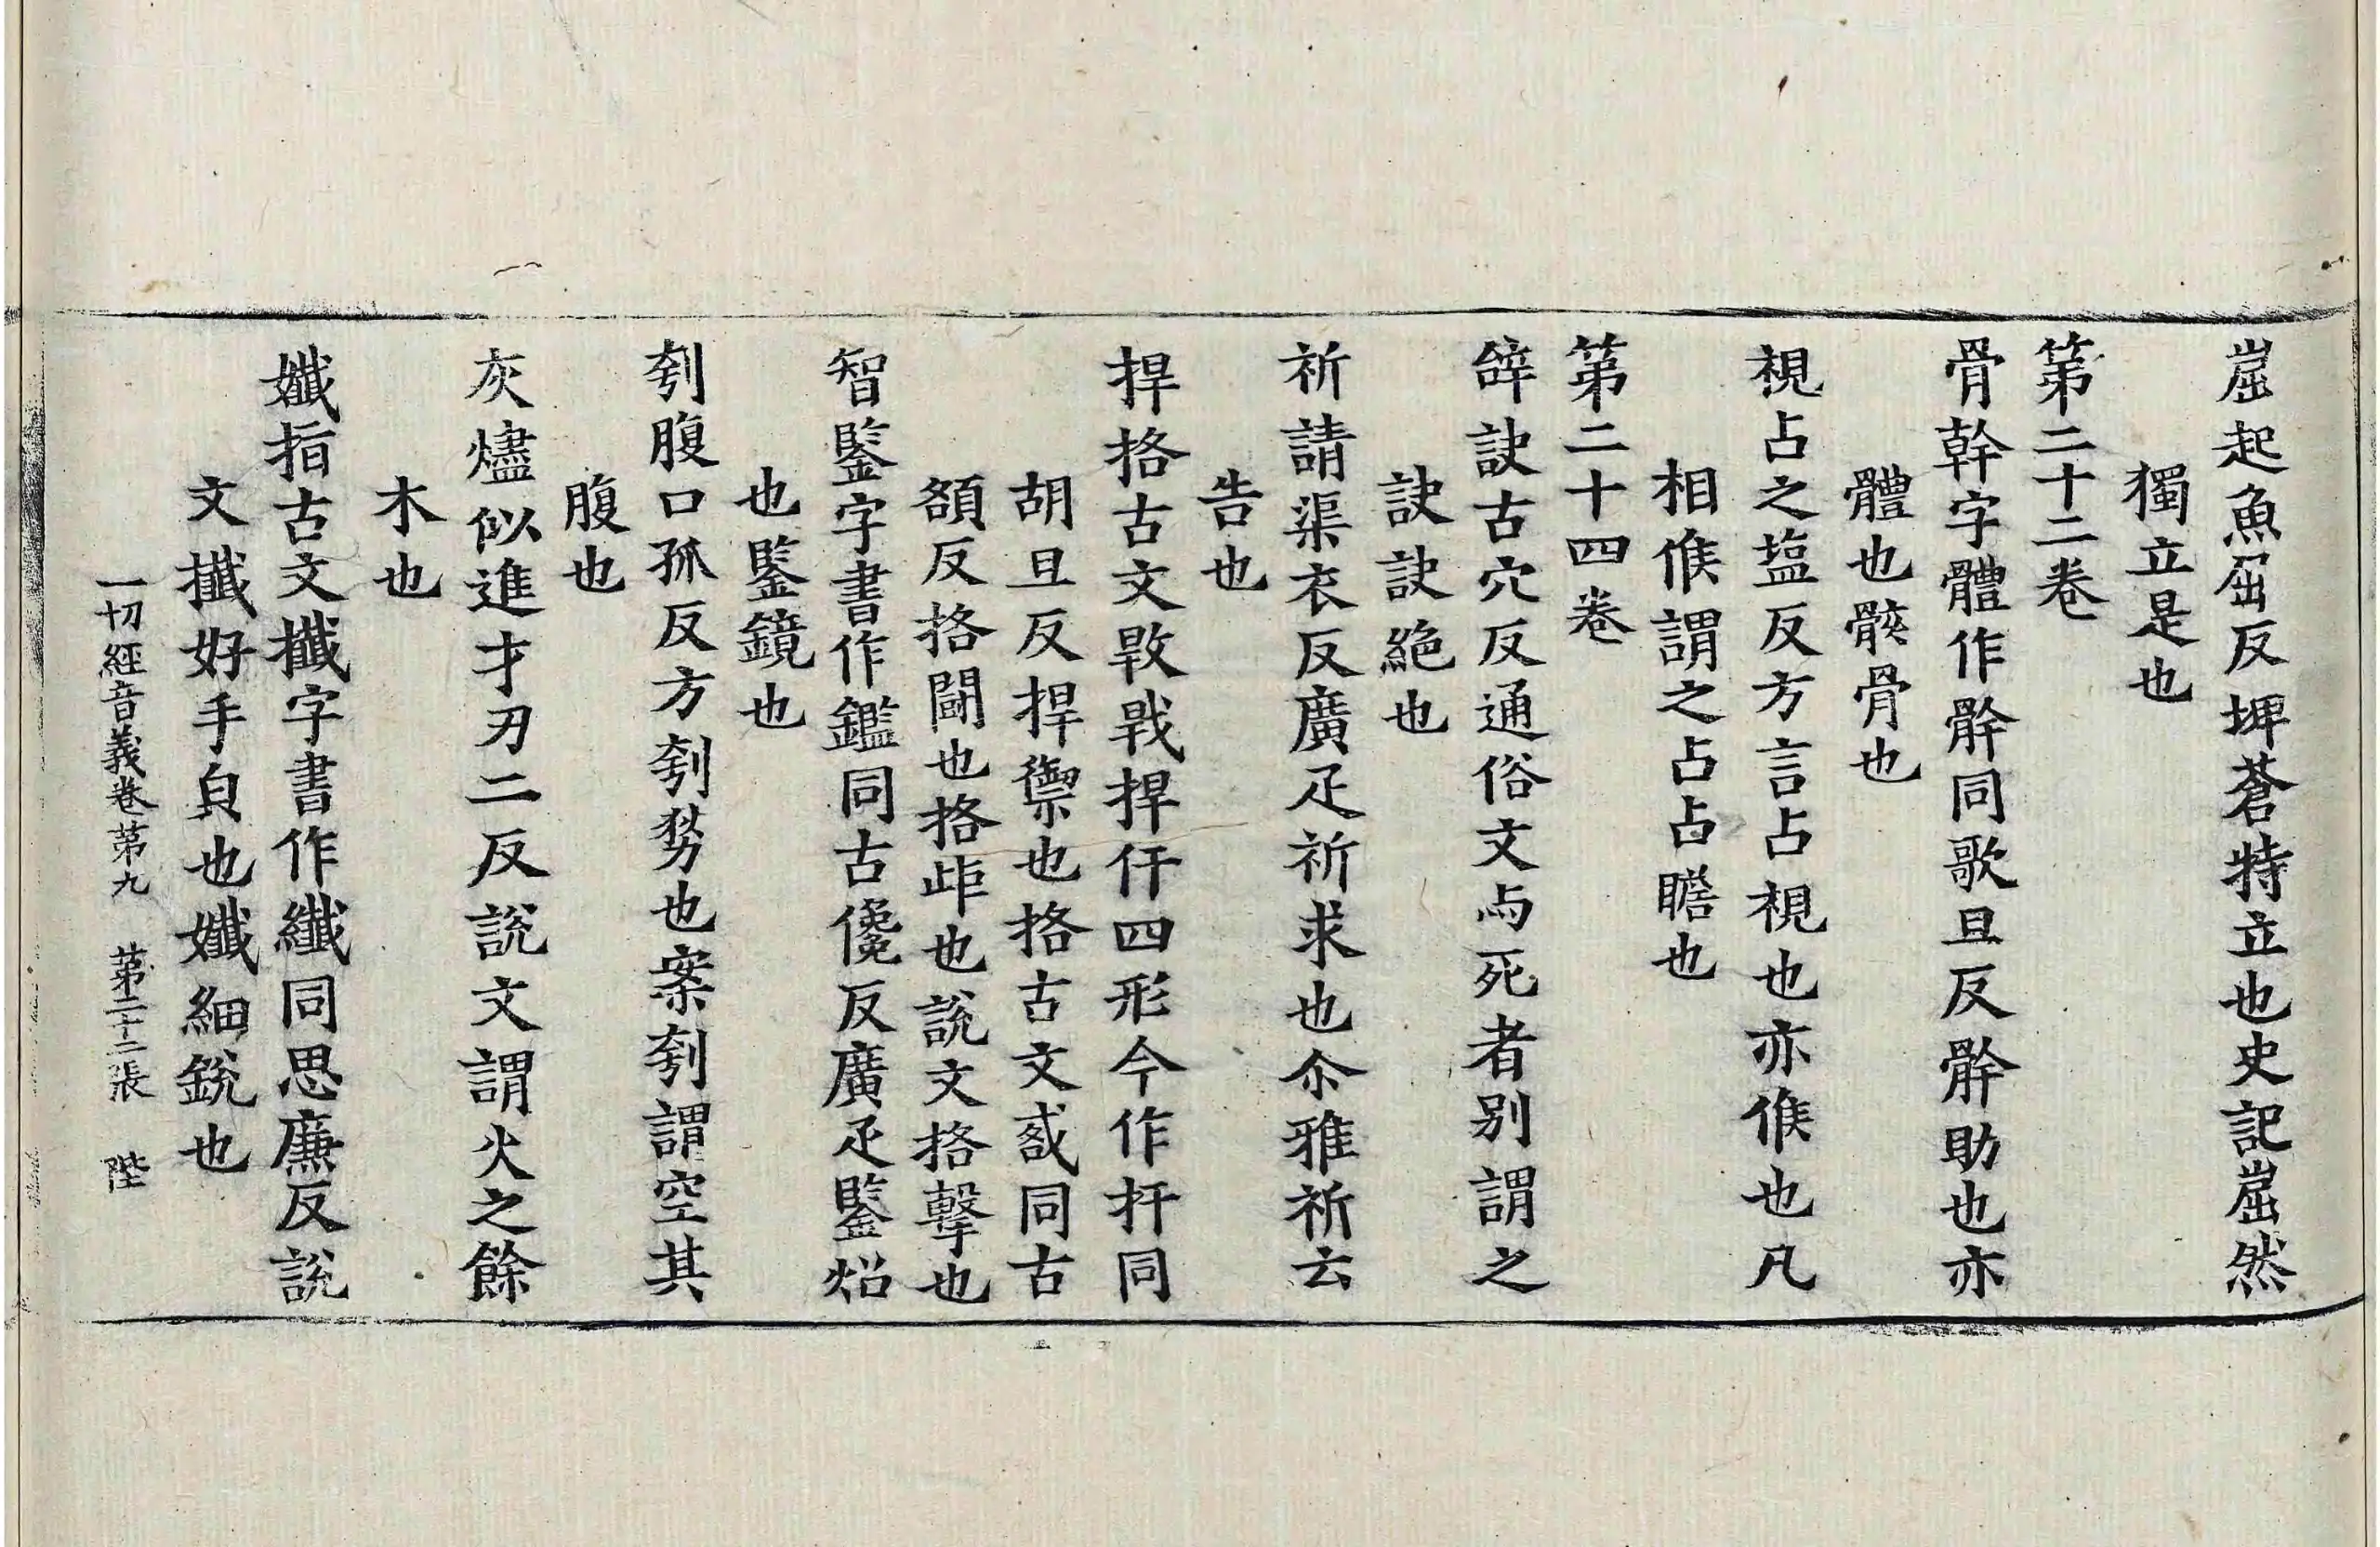 崫起魚屈反埤蒼特立也史記崫然
獨立是也
第二十二卷
骨幹字體作骭同歌旦反骭助也亦
體也骸骨也
視占之塩反方言占視也亦候也凡
相候謂之占占瞻也
第二十四卷
辝訣古穴反通俗文与死者別謂之
訣訣絕也
祈請渠衣反廣疋祈求也尒雅祈云
告也
捍挌古文戟捍仟四形今作扞同
胡旦反捍禦也挌古文敋同古
額反挌鬬也挌歫也說文挌擊也
智鋻字書作鑑同古儳反廣疋鋻炤
也鋻鏡也
刳腹口孤反方刳剺也案刳謂空其
腹也
灰燼似進才刃二反說文謂火之餘
木也
孅指古文攕字書作纖同思廉反說
文攕好手皃也孅細銳也
一切經音義卷第九 第二十二張 陛